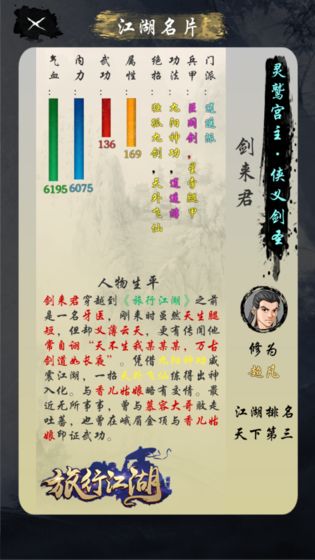 江湖名片
灵鹫宫主·侠义剑圣
剑来君
门派：逍遥派
兵甲：巨阙剑，星青腿甲
功法：九阳神功，逍遥游
绝招：独孤九剑，天外飞仙
属性
169
武功
136
内力
6075
气血
6195
修为
超凡
江湖排名
天下第三
人物生平
剑来君穿越到《旅行江湖》之前
是一名牙医，刚来时虽然天生腿
短，但却义薄云天，更有传闻他
常自诩“天不生我某某某，万古
剑道如长夜”。凭借九阳神功威
震江湖，一招天外飞仙练得出神
入化。与香儿姑娘略有交情。最
近无所事事，曾与慕容大哥败走
吐蕃，也曾在峨眉金顶与香儿姑
娘印证武功。
旅行江湖